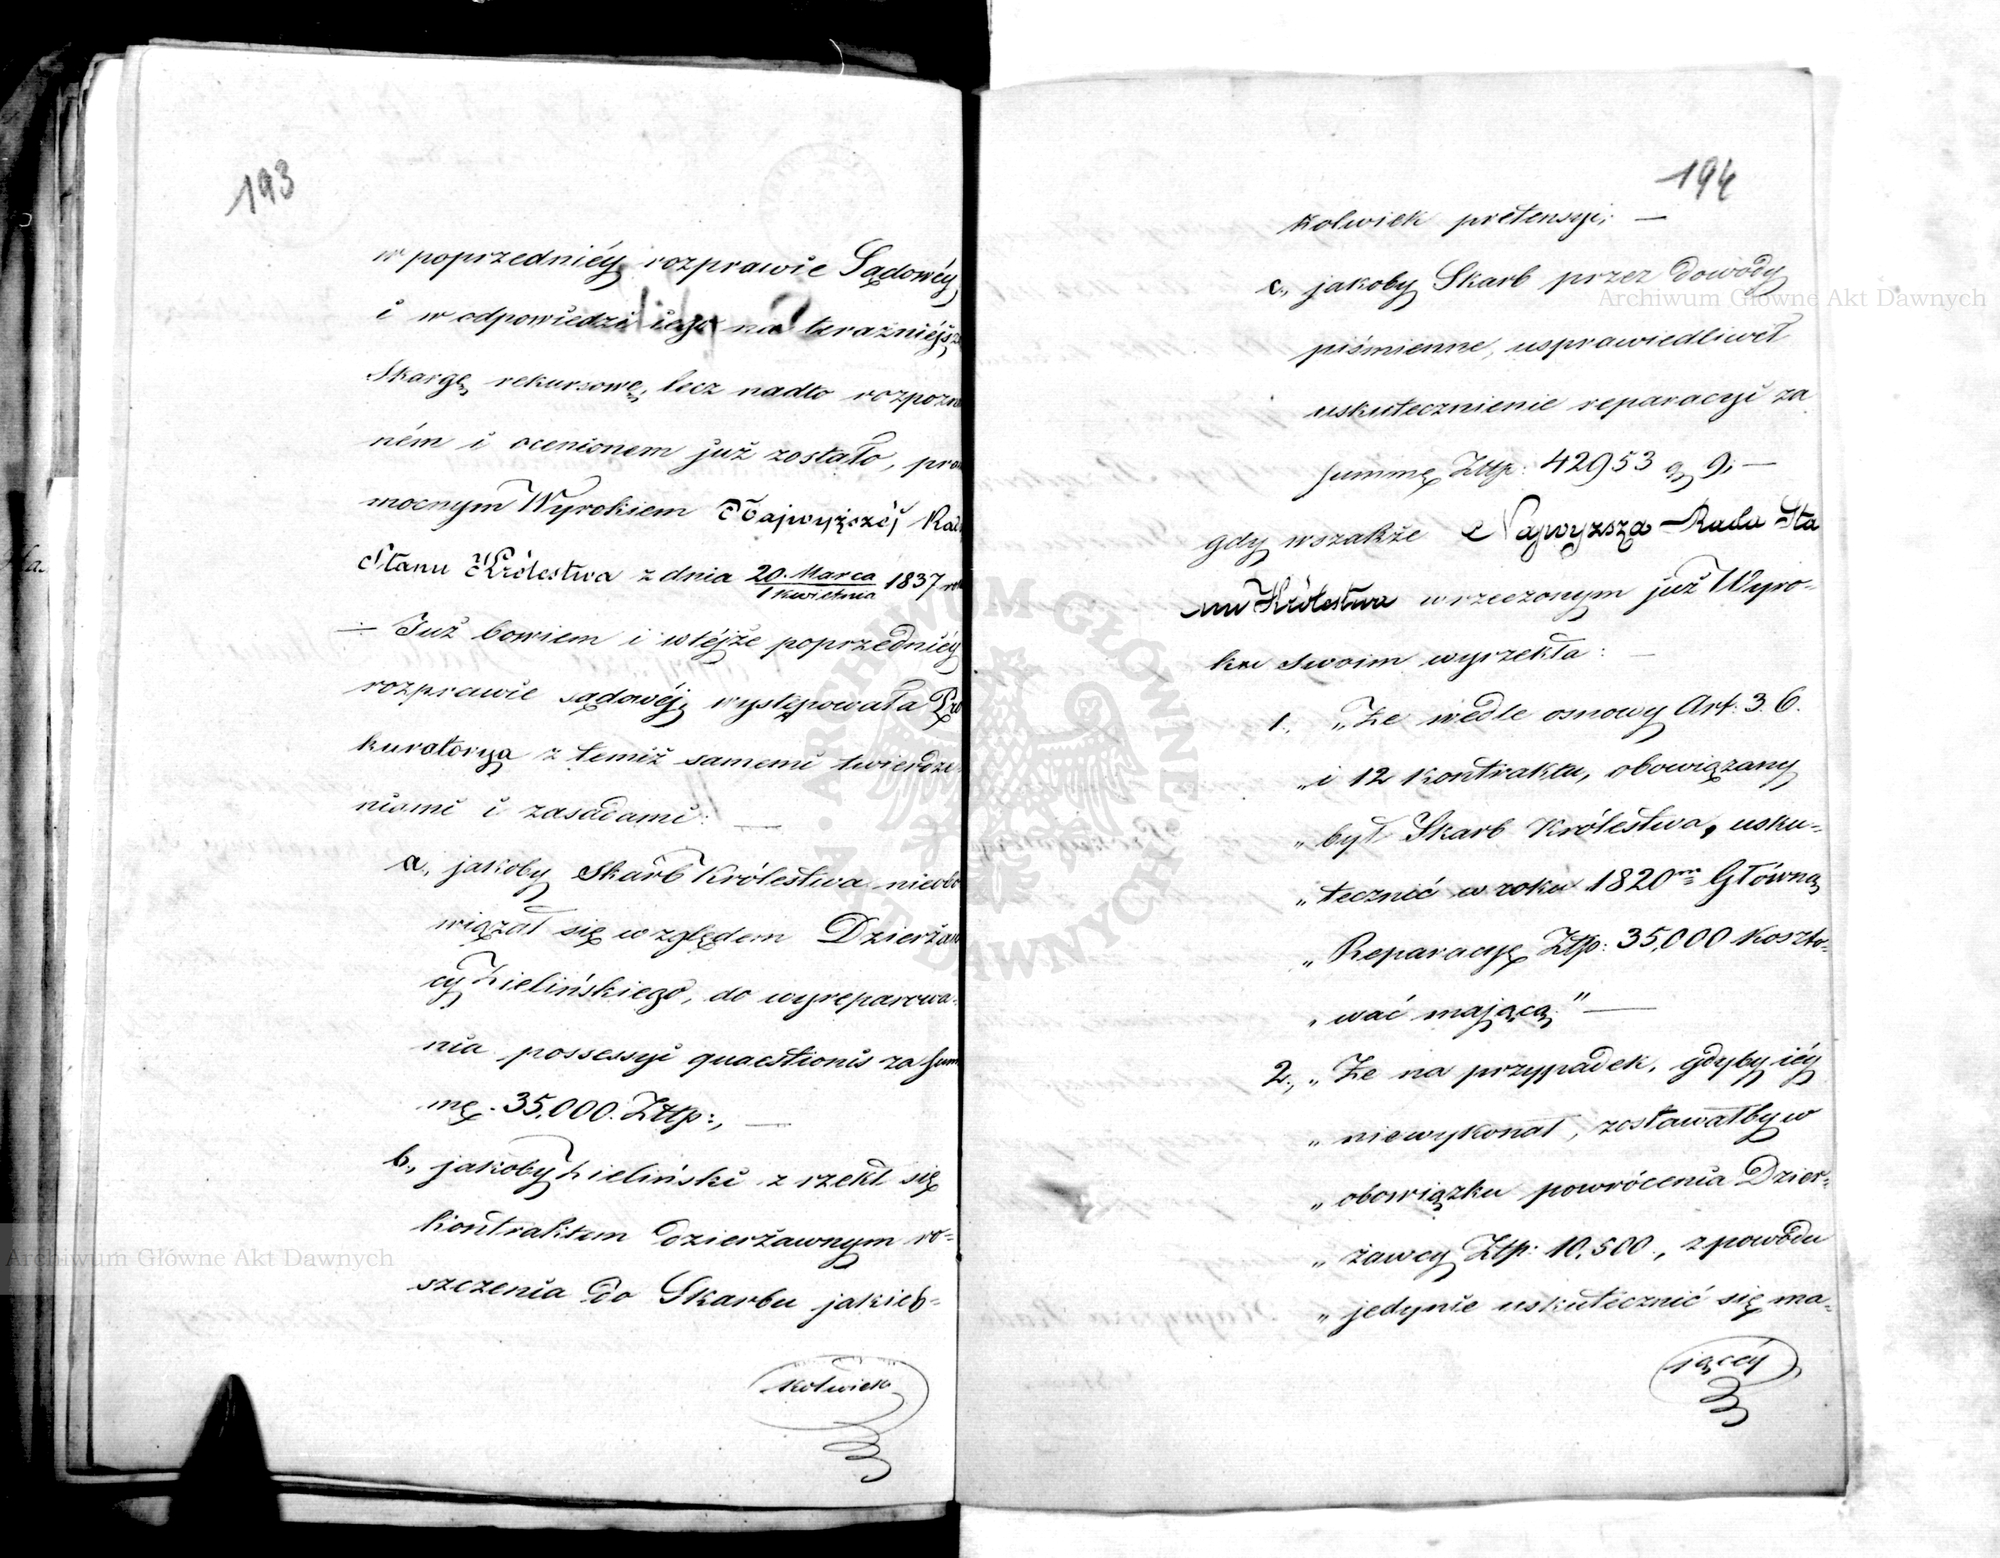 193
w poprzedniéy rozprawie Sądowéy
i w odpowiedzi iego na teraźniéjsz
Skargę rekursowę, lecz nadto rozpozna
ném i ocenionem już zostało, pra
mocnym Wyrokiem Najwyższéj Rad
Stanu Królestwa z dnia 20. Marca / 1 Kwietnia 1837 ro
— Już bowiem i w téjże poprzedniéy
rozprawie sądowéj, występowała Pro
kuratorya z temiż samemi twierdze
niami i zasadami: —
a., jakoby Skarb Królestwa niezobo
wiązał się względem Dzierżaw
cy Zielińskiego, do wyreparowa-
nia possessyi quaestionis za Sum
mę. 35.000. Złtp:, —
b., jakoby Zieliński zrzekł się
kontraktem dzierżawnym ro-
szczenia do Skarbu jakieb-
kolwiek
194
kolwiek pretensyi; —
c., jakoby Skarb przez dowody
piśmienne, usprawiedliwił
uskutecznienie reparacyi za
summę Złtp: 42953 gr 9; —
gdy wszakże Najwyzsza Rada Sta
nu Królestwa w rzeczonym już Wyro-
ku swoim wyrzekła: —
1., „Że wedle osnowy Art: 3. 6.
„i 12 kontraktu, obowiązany
„był Skarb Królestwa, usku-
„tecznić w roku 1820ym Główną
„Reparacyę Złtp: 35,000 koszto-
„wać mającą." —
2., „Że na przypadek, gdyby iéy
„niewykonał, zostawałby w
„obowiązku powrócenia Dzier-
„żawcy Złtp: 10,500., z powodu
„jedynie uskutecznić się ma-
jącéy
Archiwum Główne Akt Dawnych
Archiwum Główne Akt Dawnych
ARCHIWUM GŁÓWNE AKT DAWNYCH